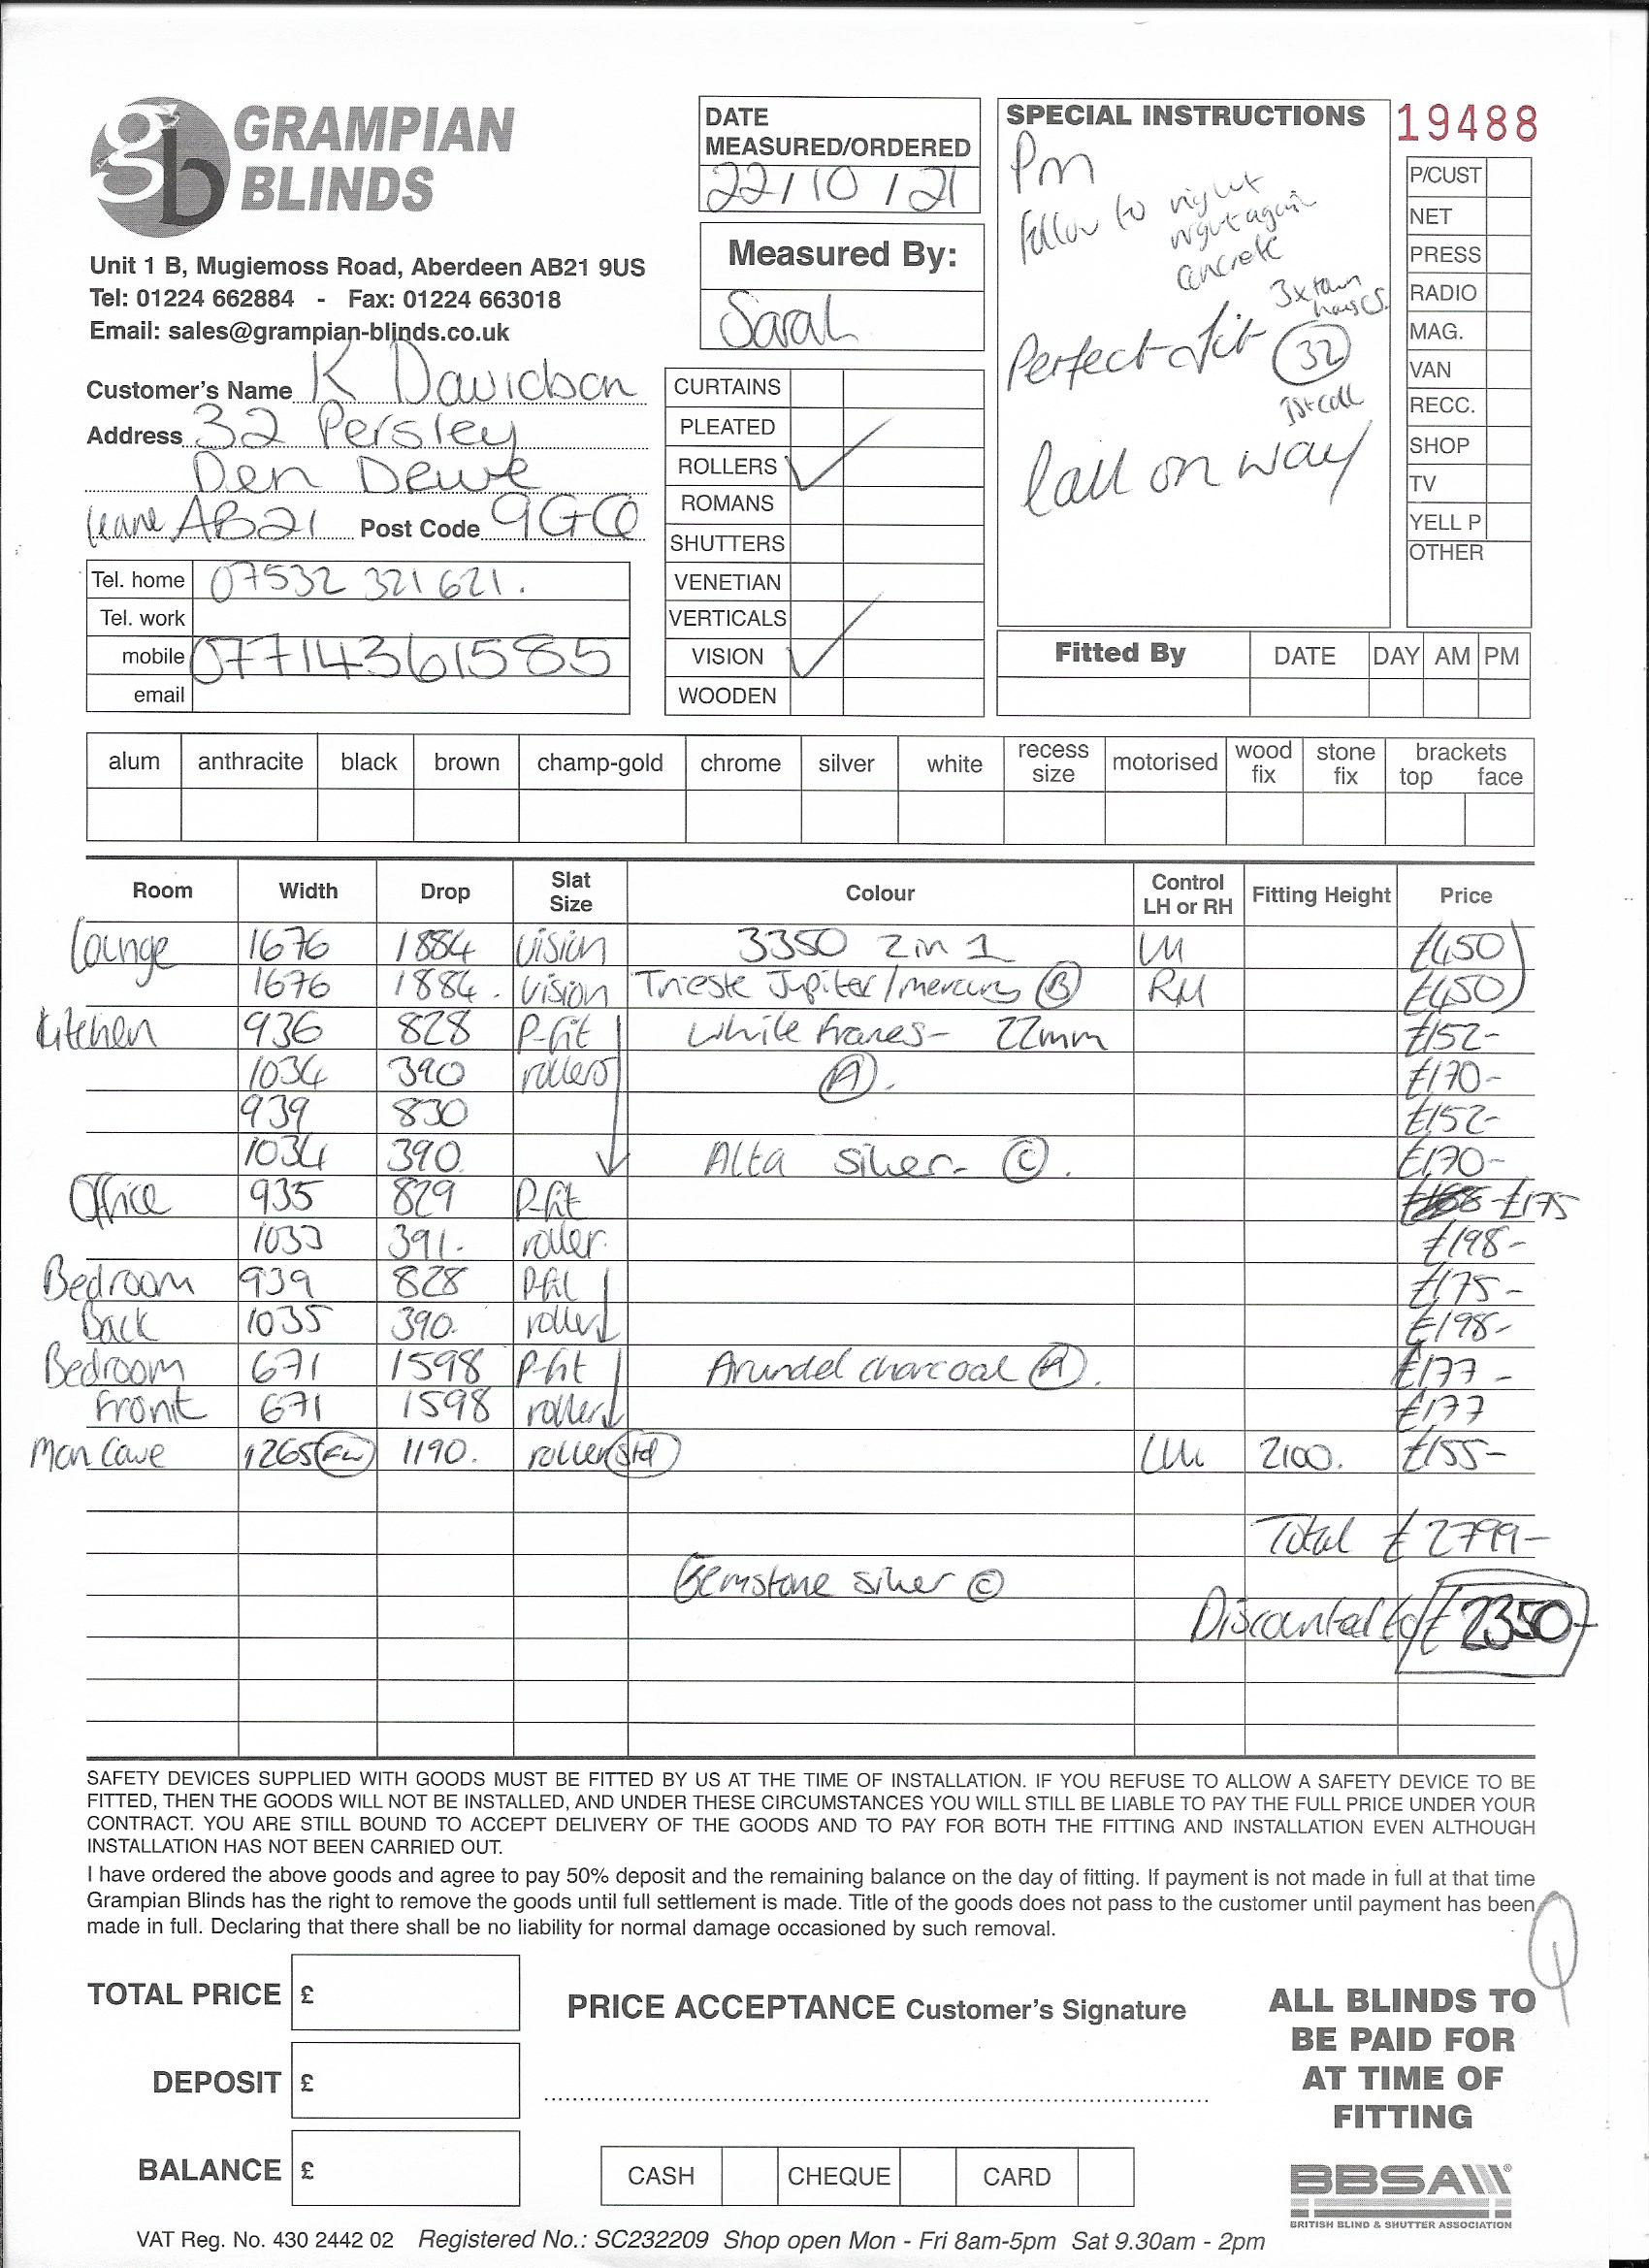 GRAMPIAN
BLINDS
Unit 1 B, Mugiemoss Road, Aberdeen AB21 9US
Tel: 01224 662884 - Fax: 01224 663018
Email: sales@grampian-blinds.co.uk
Customer's Name K Davidson
Address 32 Persley
Den Dewe
AB21 Post Code 9GQ
Tel. home 07532 321621.
Tel. work
mobile 07714361585
email
DATE
MEASURED/ORDERED
22/10/21
Measured By:
Sarah
CURTAINS
PLEATED
ROLLERS ✓
ROMANS
SHUTTERS
VENETIAN
VERTICALS
VISION ✓
WOODEN
SPECIAL INSTRUCTIONS
Pm
follow to right
right again
concrete
3x town
houses.
Perfect fit 32
1st call
Call on way
19488
P/CUST
NET
PRESS
RADIO
MAG.
VAN
RECC.
SHOP
TV
YELL P
OTHER
Fitted By DATE DAY AM PM
alum anthracite black brown champ-gold chrome silver white recess size motorised wood fix stone fix brackets top face
Room Width Drop Slat Size Colour Control LH or RH Fitting Height Price
Lounge 1676 1884 vision 3350 2 in 1 LH £450
1676 1884. vision Trieste Jupiter/mercury B RH £450
Kitchen 936 828 P-fit White frames- 22mm £152-
1034 390 rollers A. £170-
939 830 £152-
1034 390. Alta silver- C. £170-
Office 935 829 P-fit £175
1033 391. roller. £198-
Bedroom 939 828 P-fit £175-
Back 1035 390. roller £198-
Bedroom 671 1598 P-fit Arundel charcoal A. £177-
Front 671 1598 roller £177
Man Cave 1265 FW 1190. roller Std LH 2100. £155-
Total £2799-
Gemstone silver C
Discounted to £2350-
SAFETY DEVICES SUPPLIED WITH GOODS MUST BE FITTED BY US AT THE TIME OF INSTALLATION. IF YOU REFUSE TO ALLOW A SAFETY DEVICE TO BE
FITTED, THEN THE GOODS WILL NOT BE INSTALLED, AND UNDER THESE CIRCUMSTANCES YOU WILL STILL BE LIABLE TO PAY THE FULL PRICE UNDER YOUR
CONTRACT. YOU ARE STILL BOUND TO ACCEPT DELIVERY OF THE GOODS AND TO PAY FOR BOTH THE FITTING AND INSTALLATION EVEN ALTHOUGH
INSTALLATION HAS NOT BEEN CARRIED OUT.
I have ordered the above goods and agree to pay 50% deposit and the remaining balance on the day of fitting. If payment is not made in full at that time
Grampian Blinds has the right to remove the goods until full settlement is made. Title of the goods does not pass to the customer until payment has been
made in full. Declaring that there shall be no liability for normal damage occasioned by such removal.
TOTAL PRICE £
DEPOSIT £
BALANCE £
PRICE ACCEPTANCE Customer's Signature
CASH CHEQUE CARD
ALL BLINDS TO
BE PAID FOR
AT TIME OF
FITTING
BBSA
BRITISH BLIND & SHUTTER ASSOCIATION
VAT Reg. No. 430 2442 02 Registered No.: SC232209 Shop open Mon - Fri 8am-5pm Sat 9.30am - 2pm